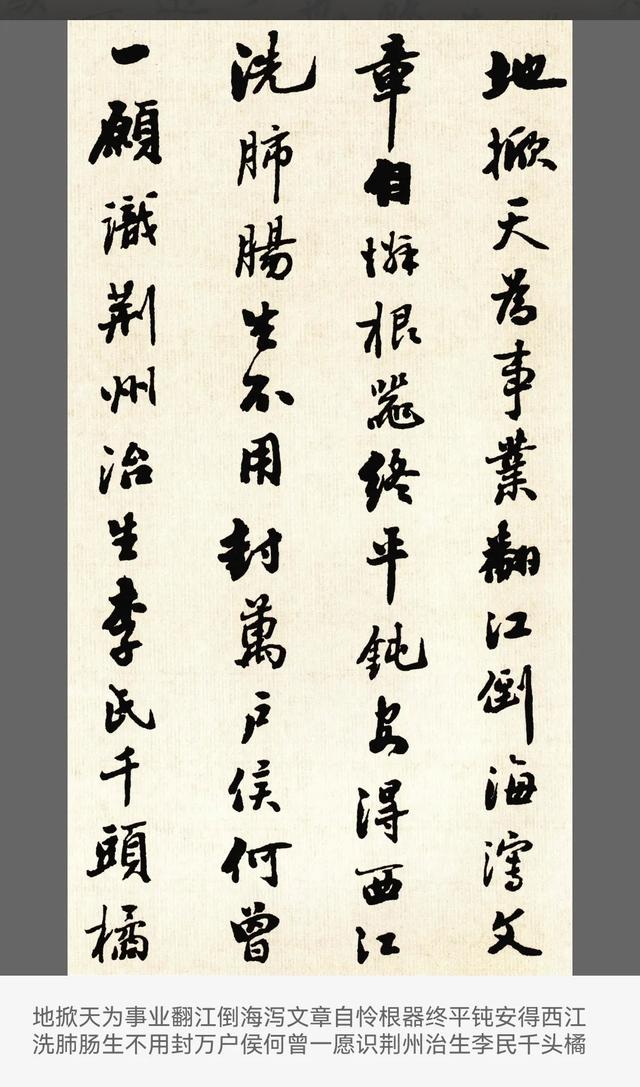 地掀天為事業翻江倒海瀉文
章自憐根器終平鈍安得西江
洗肺腸生不用封萬户侯何曾
一願識荆州治生李氏千頭橘
地掀天为事业翻江倒海泻文章自怜根器终平钝安得西江
洗肺肠生不用封万户侯何曾一愿识荆州治生李民千头橘